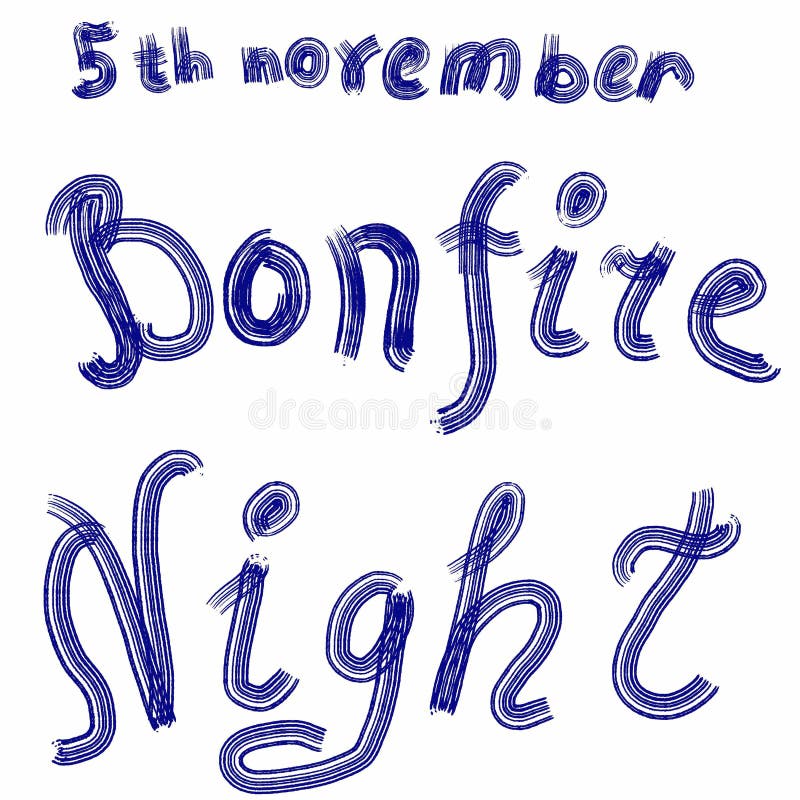 5th november
Bonfire
dreamstime
Night